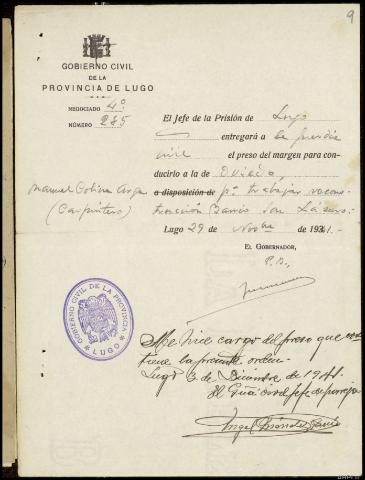 9
GOBIERNO CIVIL
DE LA
PROVINCIA DE LUGO
NEGOCIADO 4º
NÚMERO 285
El Jefe de la Prisión de Lugo
entregará a la guardia
civil el preso del margen para con-
ducirlo a la de Oviedo,
Manuel Colina
(Carpintero)
a disposición de pª trabajar recons-
trucción Barrio San Lázaro.
Lugo 29 de Novbre de 1941.-
EL GOBERNADOR,
P.D.,
GOBIERNO CIVIL DE LA PROVINCIA
* LUGO *
Me hice cargo del preso que
tiene la presente orden
Lugo 3 de Diciembre de 1941.
El Guardia civil Jefe de pareja
Angel